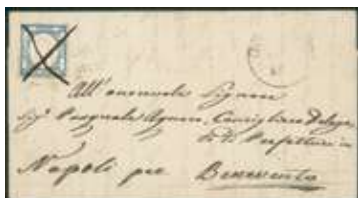 All'onorevole Signore
Sigr Pasquale Consigliere Delega
to di Prefettura in
Napoli per Benevento